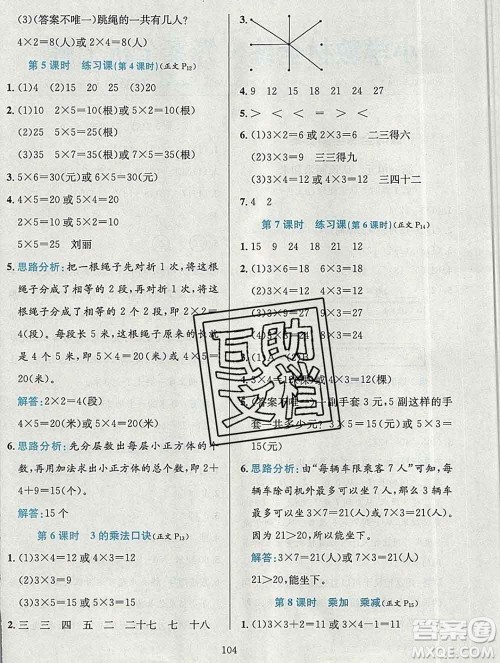 (3)(答案不唯一)跳绳的一共有几人?
4×2=8(人)或 2×4=8(人)
第 5 课时 练习课(第 4 课时)(正文 P12)
1. (1)4 (2)20 (3)15
2. (1)10 2×5=10(根)或 5×2=10(根)
(2)25 5×5=25(根)
(3)35 7×5=35(根)或 5×7=35(根)
3. 5×6=30(元)或 6×5=30(元)
4. 4×5=20或 5×4=20
2×5=10 刘丽
5. 思路分析:把一根绳子先对折 1 次,将这根
绳子分成了相等的 2 段;再对折 1 次,将这根
绳子分成了相等的 2 个 2 段,即 2×2=
4(段)。每段长 5 米,这根绳子原来的长
就是 4 个 5 米,4×5=20(米)或 5×
4=20(米)。
解答:2×2=4(段)
4×5=20(米)或 5×4=20(米)
6. 思路分析:先分层数出每层小正方体的个
数,再用加法求出小正方体的总个数,即 2+
4+9=15(个)。
解答:15 个
第 6 课时 3 的乘法口诀(正文 P13)
1. (1)3×4=12 或 4×3=12
(2)3×6=18 或 6×3=18
(3)3×5=15 或 5×3=15
2. 三 三 四 五 二 二十七 七 十八
3.
4. 9 15 6 18 24 21
5. > < = < < =
6. (1)3×2=6 或 2×3=6 二三得六
(2)3×3=9 三三得九
(3)3×4=12 或 4×3=12 三四十二
7. 4 2
第 7 课时 练习课(第 6 课时)(正文 P14)
1. 15 9 12 24 18 21
2. (1)3×4=12 或 4×3=12
(2)3×6=18 或 6×3=18
(3)3×9=27 或 9×3=27
3. (1)3×3=9(元)
(2)3×8=24
4. 3×4=12(棵)或 4×3=12(棵)
5. (答案不唯一)一副手套 3 元,5 副这样的手
套一共多少元? 3×5=15(元)或 5×3=
15(元)
6. 思路分析:由“每辆车限乘客 7 人”可知,
每辆车除司机外最多载客 7 人,那么 3
辆车最多载客 3×7=21(人)或 7×3=
21(人),因为 21>20,所以能一次运完。
解答:3×7=21(人)或 7×3=21(人)
21>20,所以能一次运完。
第 8 课时 乘加 乘减(正文 P15)
1. (1)3×3+2=11 或 3×4-1=11
104
互助文档
答案圈
MXQE.COM